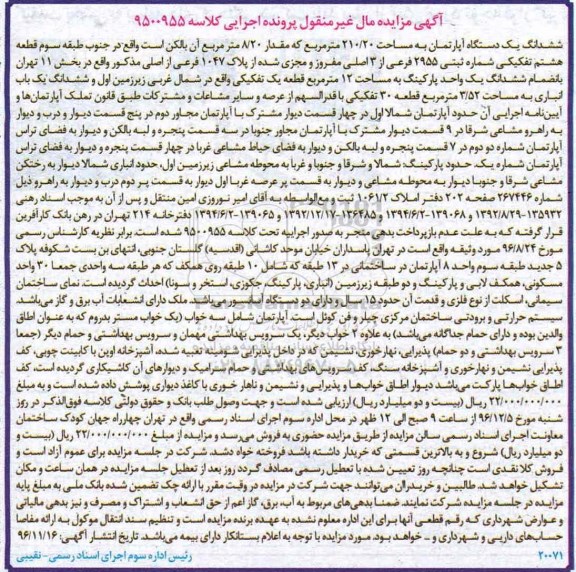 آگهی مزایده مال غیرمنقول پرونده اجرایی کلاسه ۹۵۰۰۹۵۵
ششدانگ یک دستگاه آپارتمان به مساحت ۲۱۰/۲۰ مترمربع که مقدار ۸/۲۰ متر مربع آن بالکن است واقع در جنوب طبقه سوم قطعه
هشتم تفکیکی شماره ثبتی ۲۹۵۵ فرعی از ۳ اصلی مفروز و مجزی شده از پلاک ۱۰۴۷ فرعی از اصلی مذکور واقع در بخش ۱۱ تهران
بانضمام ششدانگ یک واحد پارکینگ به مساحت ۱۲ مترمربع قطعه یک تفکیکی واقع در شمال غربی زیرزمین اول و ششدانگ یک باب
انباری به مساحت ۳/۵۲ مترمربع قطعه ۳۰ تفکیکی با قدرالسهم از عرصه و سایر مشاعات و مشترکات طبق قانون تملک آپارتمان‌ها و
آیین‌نامه اجرایی آن حدود آپارتمان شمالا اول در چهار قسمت دیوار مشترک با آپارتمان مجاور دوم در پنج قسمت دیوار و درب و دیوار
به راهرو مشاعی شرقا در ۹ قسمت دیوار مشترک با آپارتمان مجاور جنوبا در سه قسمت پنجره و لبه بالکن و دیوار به فضای تراس
آپارتمان شماره دو دوم در ۷ قسمت پنجره و لبه بالکن و دیوار به فضای حیاط مشاعی غربا در چهار قسمت پنجره و دیوار به فضای تراس
آپارتمان شماره یک. حدود پارکینگ: شمالا و شرقا و جنوبا و غربا به محوطه مشاعی زیرزمین اول، حدود انباری شمالا دیوار به رختکن
مشاعی شرقا و جنوبا دیوار به محوطه مشاعی و دیوار به قسمت پر عرصه غربا اول دیوار به قسمت پر دوم درب و دیوار به راهرو ذیل
شماره ۲۶۷۴۴۶ صفحه ۲۰۲ دفتر املاک ۱۰۶۱/۲ مع‌الواسطه به آقای امیر نوروزی امین منتقل و پس از آن به موجب اسناد رهنی
۱۳۵۹۳۲-۱۳۹۲/۸/۲۹ و ۱۳۹۰۶۸-۱۳۹۴/۶/۲ و ۱۳۶۴۸۵-۱۳۹۲/۱۲/۱۷ و ۱۳۹۰۶۵-۱۳۹۴/۶/۲ دفترخانه ۲۱۴ تهران در رهن بانک کارآفرین
قرار گرفته که به علت عدم بازپرداخت بدهی منجر به صدور اجراییه تحت کلاسه ۹۵۰۰۹۵۵ شده است. برابر نظریه کارشناس رسمی
مورخ ۹۶/۸/۲۴ مورد وثیقه واقع است در تهران پاسداران خیابان موحد کاشانی (اقدسیه) گلستان جنوبی، انتهای بن بست شکوفه پلاک
۵ جدید طبقه سوم واحد ۸ آپارتمان در ساختمانی در ۱۳ طبقه که شامل ۱۰ طبقه روی همکف که هر طبقه سه واحدی جمعا ۳۰ واحد
مسکونی، همکف لابی و پارکینگ و دو طبقه زیرزمین (انباری، پارکینگ، جکوزی، استخر و سونا) احداث گردیده است. نمای ساختمان
سیمانی، اسکلت از نوع فلزی و قدمت آن حدود ۱۵ سال و دارای دو دستگاه آسانسور می‌باشد. ملک دارای انشعابات آب برق و گاز می‌باشد.
سیستم حرارتی و برودتی ساختمان مرکزی چیلر و فن کوئل است. آپارتمان شامل سه خواب (یک خواب مستر بدروم که به عنوان اطاق
والدین بوده و دارای حمام جداگانه می‌باشد) به علاوه ۲ خواب دیگر، یک سرویس بهداشتی مهمان و سرویس بهداشتی و حمام دیگر (جمعا
۳ سرویس بهداشتی و دو حمام) پذیرایی، نهارخوری، نشیمن که در داخل پذیرایی شومینه تعبیه شده، آشپزخانه اوپن با کابینت چوبی، کف
پذیرایی نشیمن و نهارخوری و آشپزخانه سنگ، کف سرویس‌های بهداشتی و حمام‌ها سرامیک و دیوارهای آن کاشیکاری گردیده است، کف
اطاق خواب‌ها پارکت می‌باشد دیوار اطاق خواب‌ها و پذیرایی و نشیمن و ناهار خوری با کاغذ دیواری پوشش داده شده است و به مبلغ
۲۲/۰۰۰/۰۰۰/۰۰۰ ریال (بیست و دو میلیارد ریال) ارزیابی شده است و جهت وصول طلب بانک و حقوق دولتی کلاسه فوق‌الذکر در روز
شنبه مورخ ۹۶/۱۲/۵ از ساعت ۹ صبح الی ۱۲ ظهر در محل اداره سوم اجرای اسناد رسمی واقع در تهران چهارراه جهان کودک ساختمان
معاونت اجرای اسناد رسمی سالن مزایده از طریق مزایده حضوری به فروش می‌رسد و مزایده از مبلغ ۲۲/۰۰۰/۰۰۰/۰۰۰ ریال (بیست و
دو میلیارد ریال) شروع و به بالاترین قسمتی که خریدار داشته باشد فروخته خواه دشد. شرکت در جلسه مزایده برای عموم آزاد است و
فروش کلا نقدی است چنانچه روز تعیین شده با تعطیل رسمی مصادف گردد روز بعد از تعطیل جلسه مزایده در همان ساعت و مکان
تشکیل خواهد شد. طالبین و خریداران می‌توانند جهت شرکت در مزایده در وقت مقرر با ارائه چک تضمین شده بانک ملی به مبلغ پایه
مزایده در جلسه مزایده شرکت نمایند. ضمنا بدهی‌های مربوط به آب، برق، گاز اعم از حق انشعاب و اشتراک و مصرف و نیز بدهی مالیاتی
و عوارض شهرداری که رقم قطعی آنها برای این اداره معلوم نشده به عهده برنده مزایده است و تنظیم سند انتقال موکول به ارائه مفاصا
حساب‌های دارایی و شهرداری و ... خواهد بود. مورد مزایده با توجه به اعلام بستانکار دارای بیمه می‌باشد. تاریخ انتشار آگهی: ۹۶/۱۱/۱۶
۲۰۰۷۱ رئیس اداره سوم اجرای اسناد رسمی- نقیبی